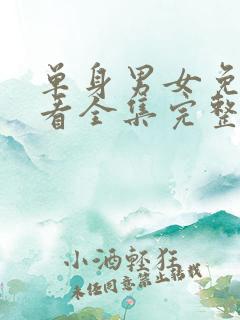 单身男女免
看全集完整
小酒轻狂
未经同意禁止转载